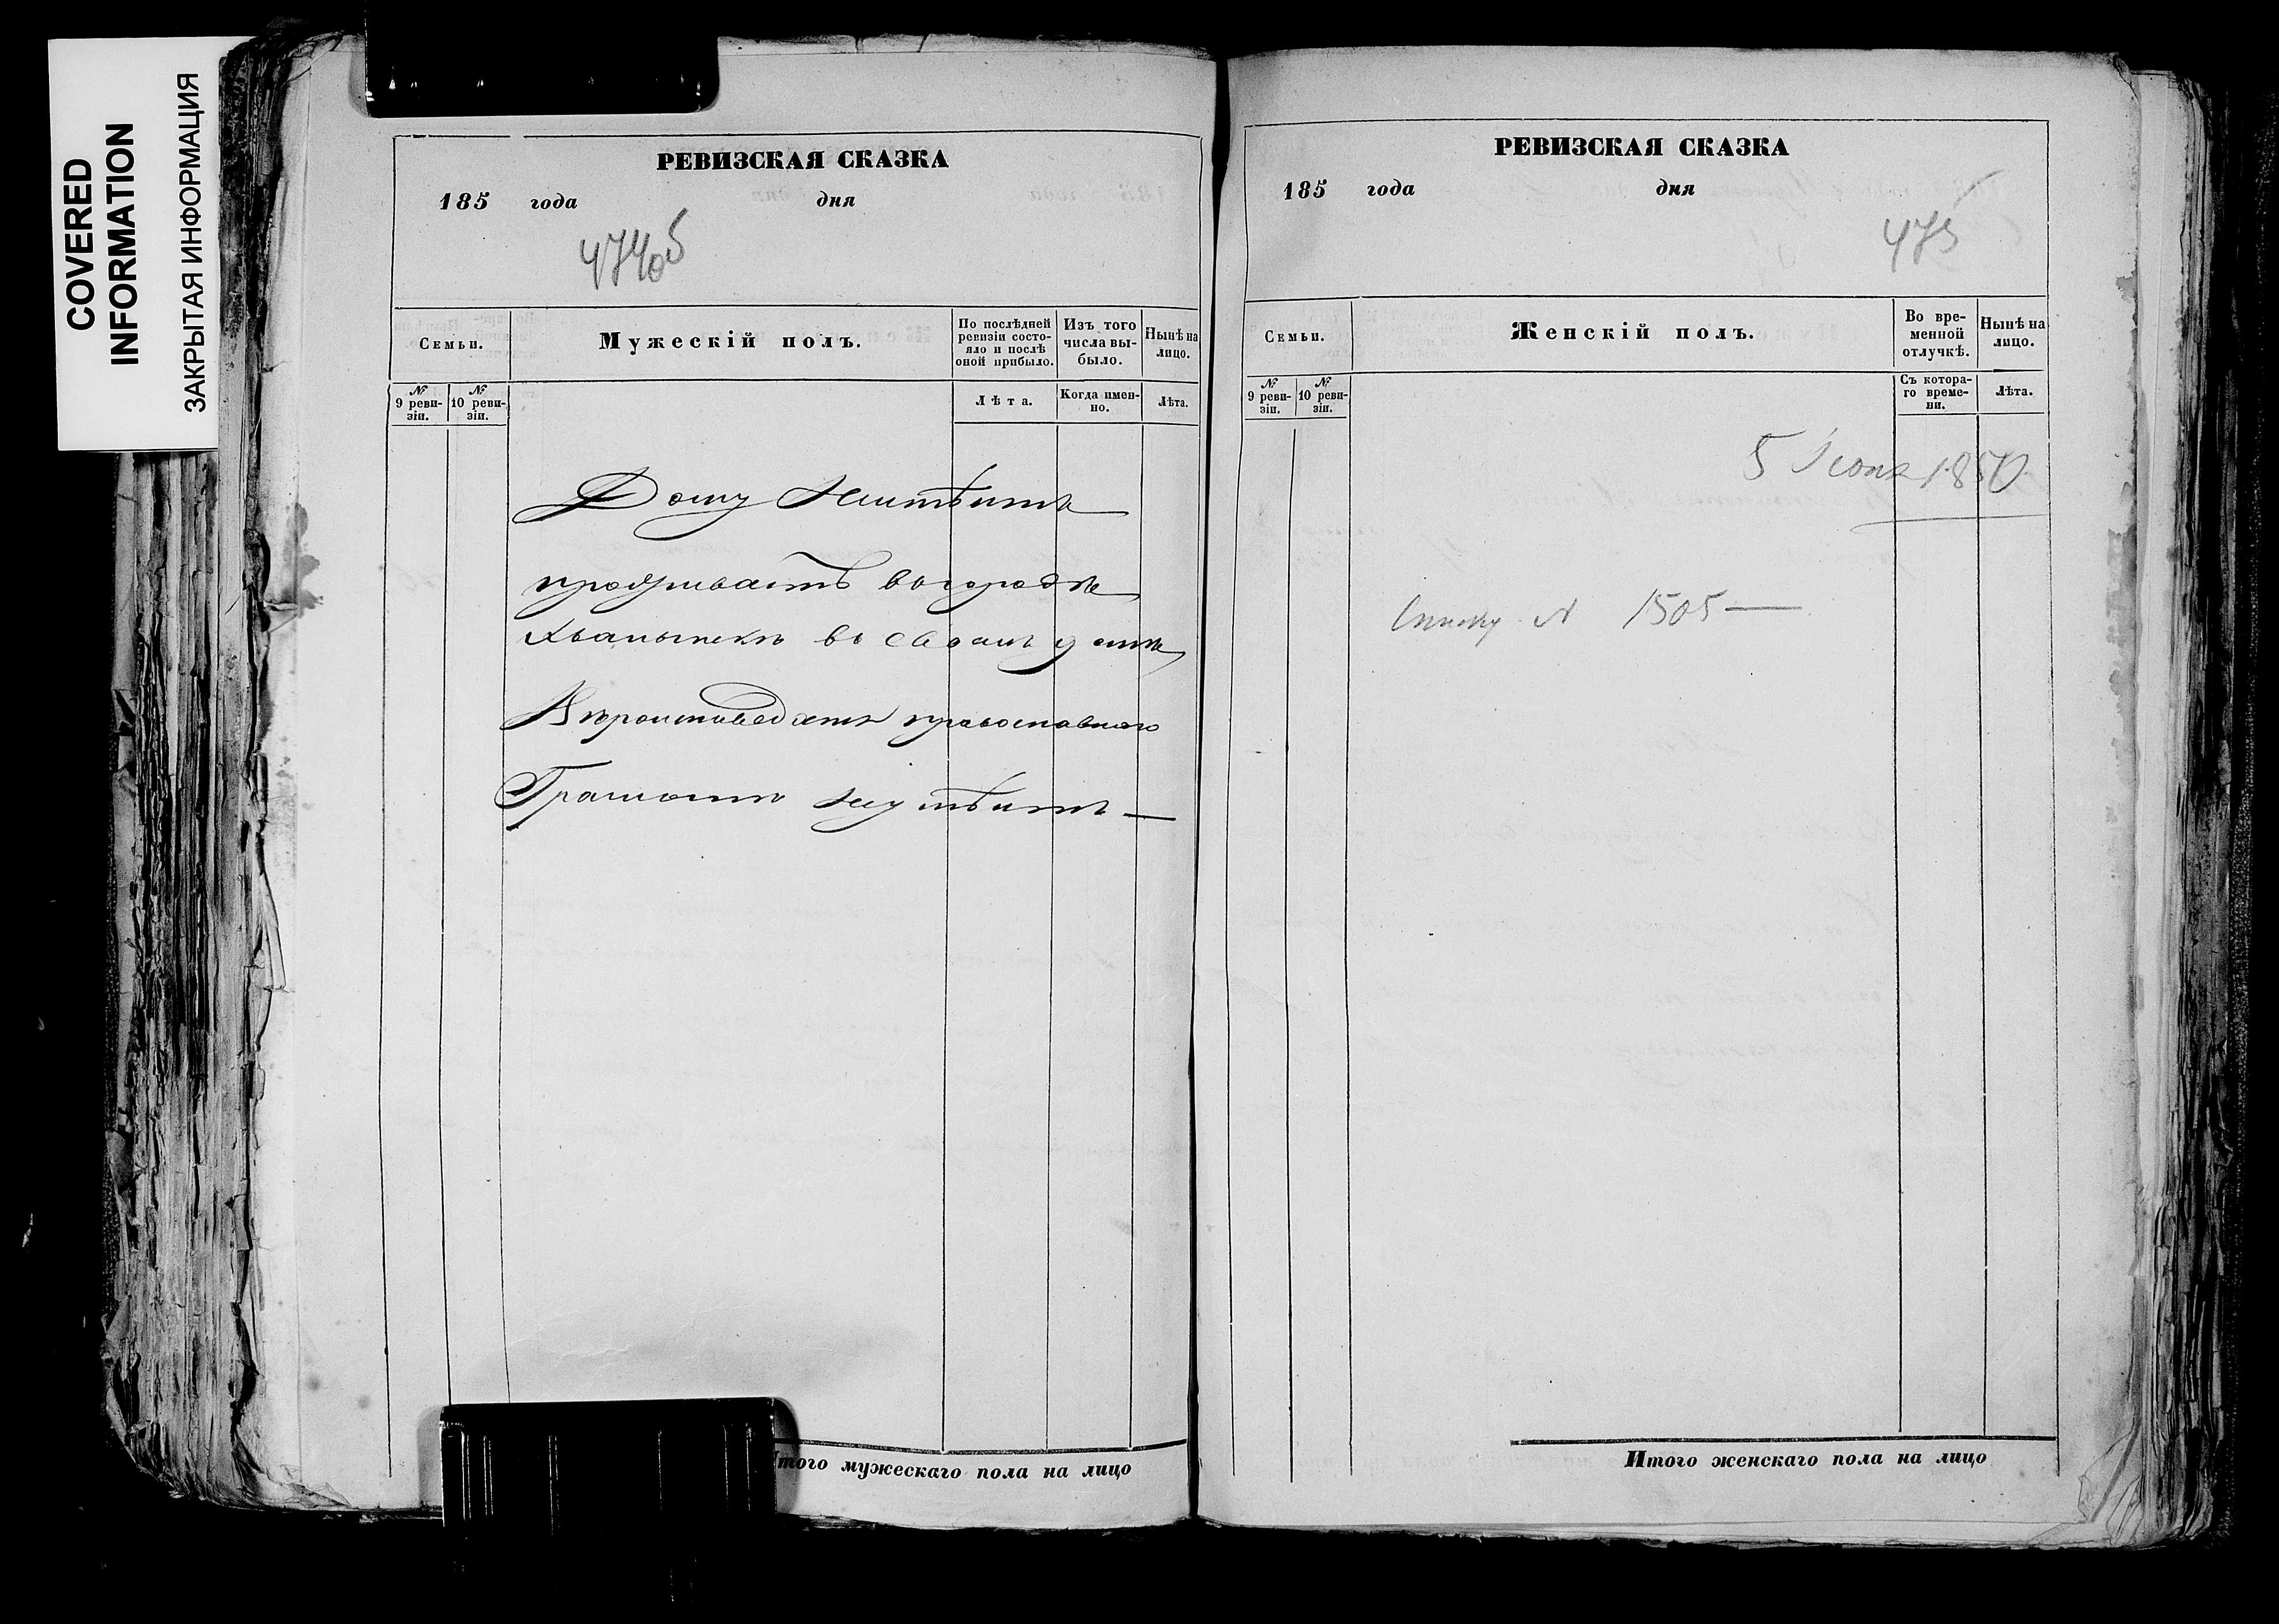 COVERED
INFORMATION
ЗАКРЫТАЯ ИНФОРМАЦИЯ
РЕВИЗСКАЯ СКАЗКА
185 года дня
474об
Семьи.
Мужескій полъ.
По послѣдней ревизіи состояло и послѣ оной прибыло.
Изъ того числа выбыло.
Нынѣ на лицо.
№ 9 ревизіи.
№ 10 ревизіи.
Лѣта.
Когда именно.
Лѣта.
Дому
проживаетъ въ городѣ
Хвалынскѣ въ своемъ домѣ
православнаго
Грамотѣ
Итого мужескаго пола на лицо
РЕВИЗСКАЯ СКАЗКА
185 года дня
475
Семьи.
Женскій полъ.
Во временной отлучкѣ.
Нынѣ на лицо.
№ 9 ревизіи.
№ 10 ревизіи.
Съ котораго времени.
Лѣта.
5 Іюня 1850
№ 1505
Итого женскаго пола на лицо